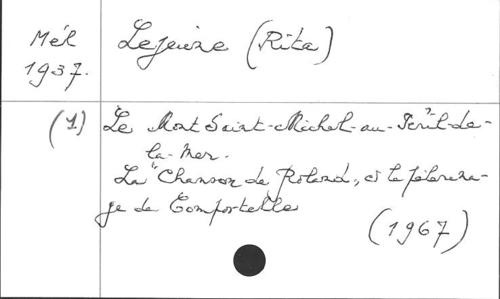 Mél
1937.
Lejeune (Rita)
(1) Le Mont Saint-Michel-au-Péril-de-
la-Mer.
La "Chanson de Roland", et le pèlerina-
ge de Compostelle
(1967)